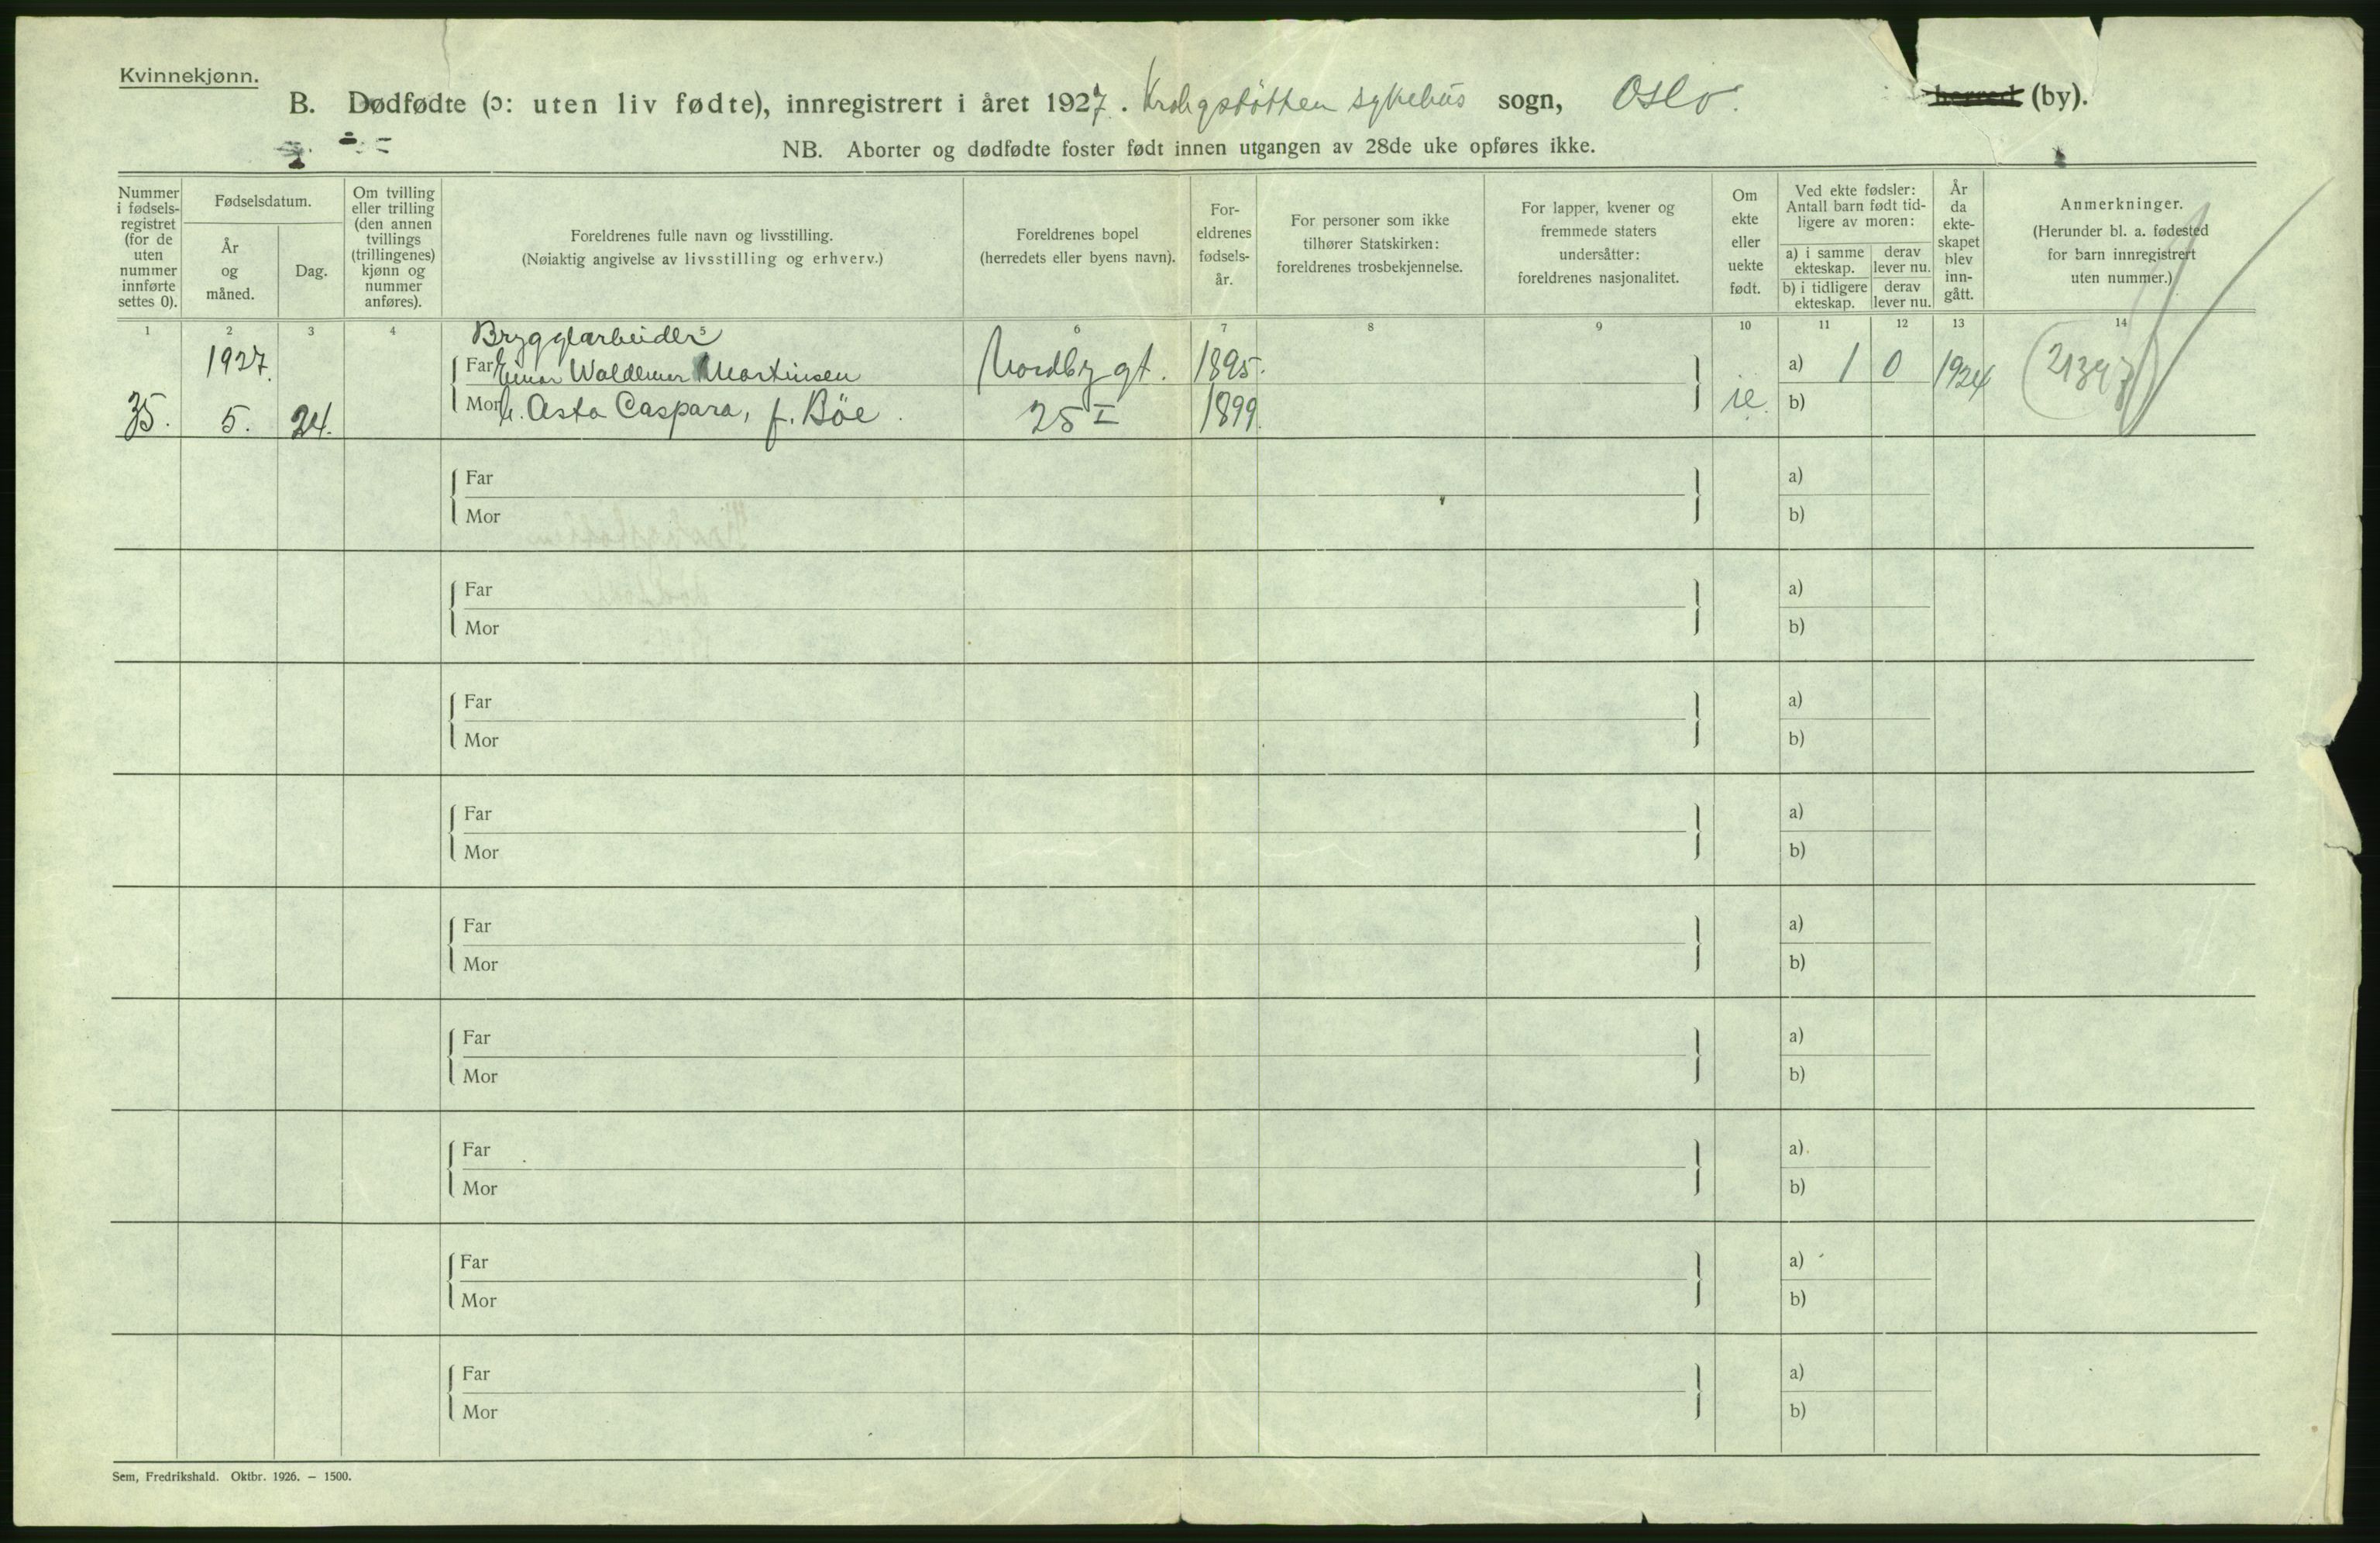 Kvinnekjønn.
B. Dødfødte (ɔ: uten liv fødte), innregistrert i året 1927. Krohgstötten sykehus sogn, Oslo. herred (by).
NB. Aborter og dødfødte foster født innen utgangen av 28de uke opføres ikke.
Nummer i fødsels-registret (for de uten nummer innførte settes 0).
Fødselsdatum.
År og måned.
Dag.
Om tvilling eller trilling (den annen tvillings (trillingenes) kjønn og nummer anføres).
Foreldrenes fulle navn og livsstilling.
(Nøiaktig angivelse av livsstilling og erhverv.)
Foreldrenes bopel
(herredets eller byens navn).
For-eldrenes fødsels-år.
For personer som ikke tilhører Statskirken: foreldrenes trosbekjennelse.
For lapper, kvener og fremmede staters undersåtter: foreldrenes nasjonalitet.
Om ekte eller uekte født.
Ved ekte fødsler: Antall barn født tid-ligere av moren:
a) i samme ekteskap. derav lever nu.
b) i tidligere ekteskap. derav lever nu.
År da ekte-skapet blev inn-gått.
Anmerkninger.
(Herunder bl. a. fødested for barn innregistrert uten nummer.)
1 2 3 4 5 6 7 8 9 10 11 12 13 14
Bryggearbeider
1927. Far Einar Waldemar Martinsen Nordbygt. 1895. a) 1 0 1924 (21397)
35. 5. 24. Mor h. Asta Caspara, f. Böe. 25 I 1899. ie. b)
Far a)
Mor b)
Far a)
Mor b)
Far a)
Mor b)
Far a)
Mor b)
Far a)
Mor b)
Far a)
Mor b)
Far a)
Mor b)
Far a)
Mor b)
Far a)
Mor b)
Sem, Fredrikshald. Oktbr. 1926. — 1500.